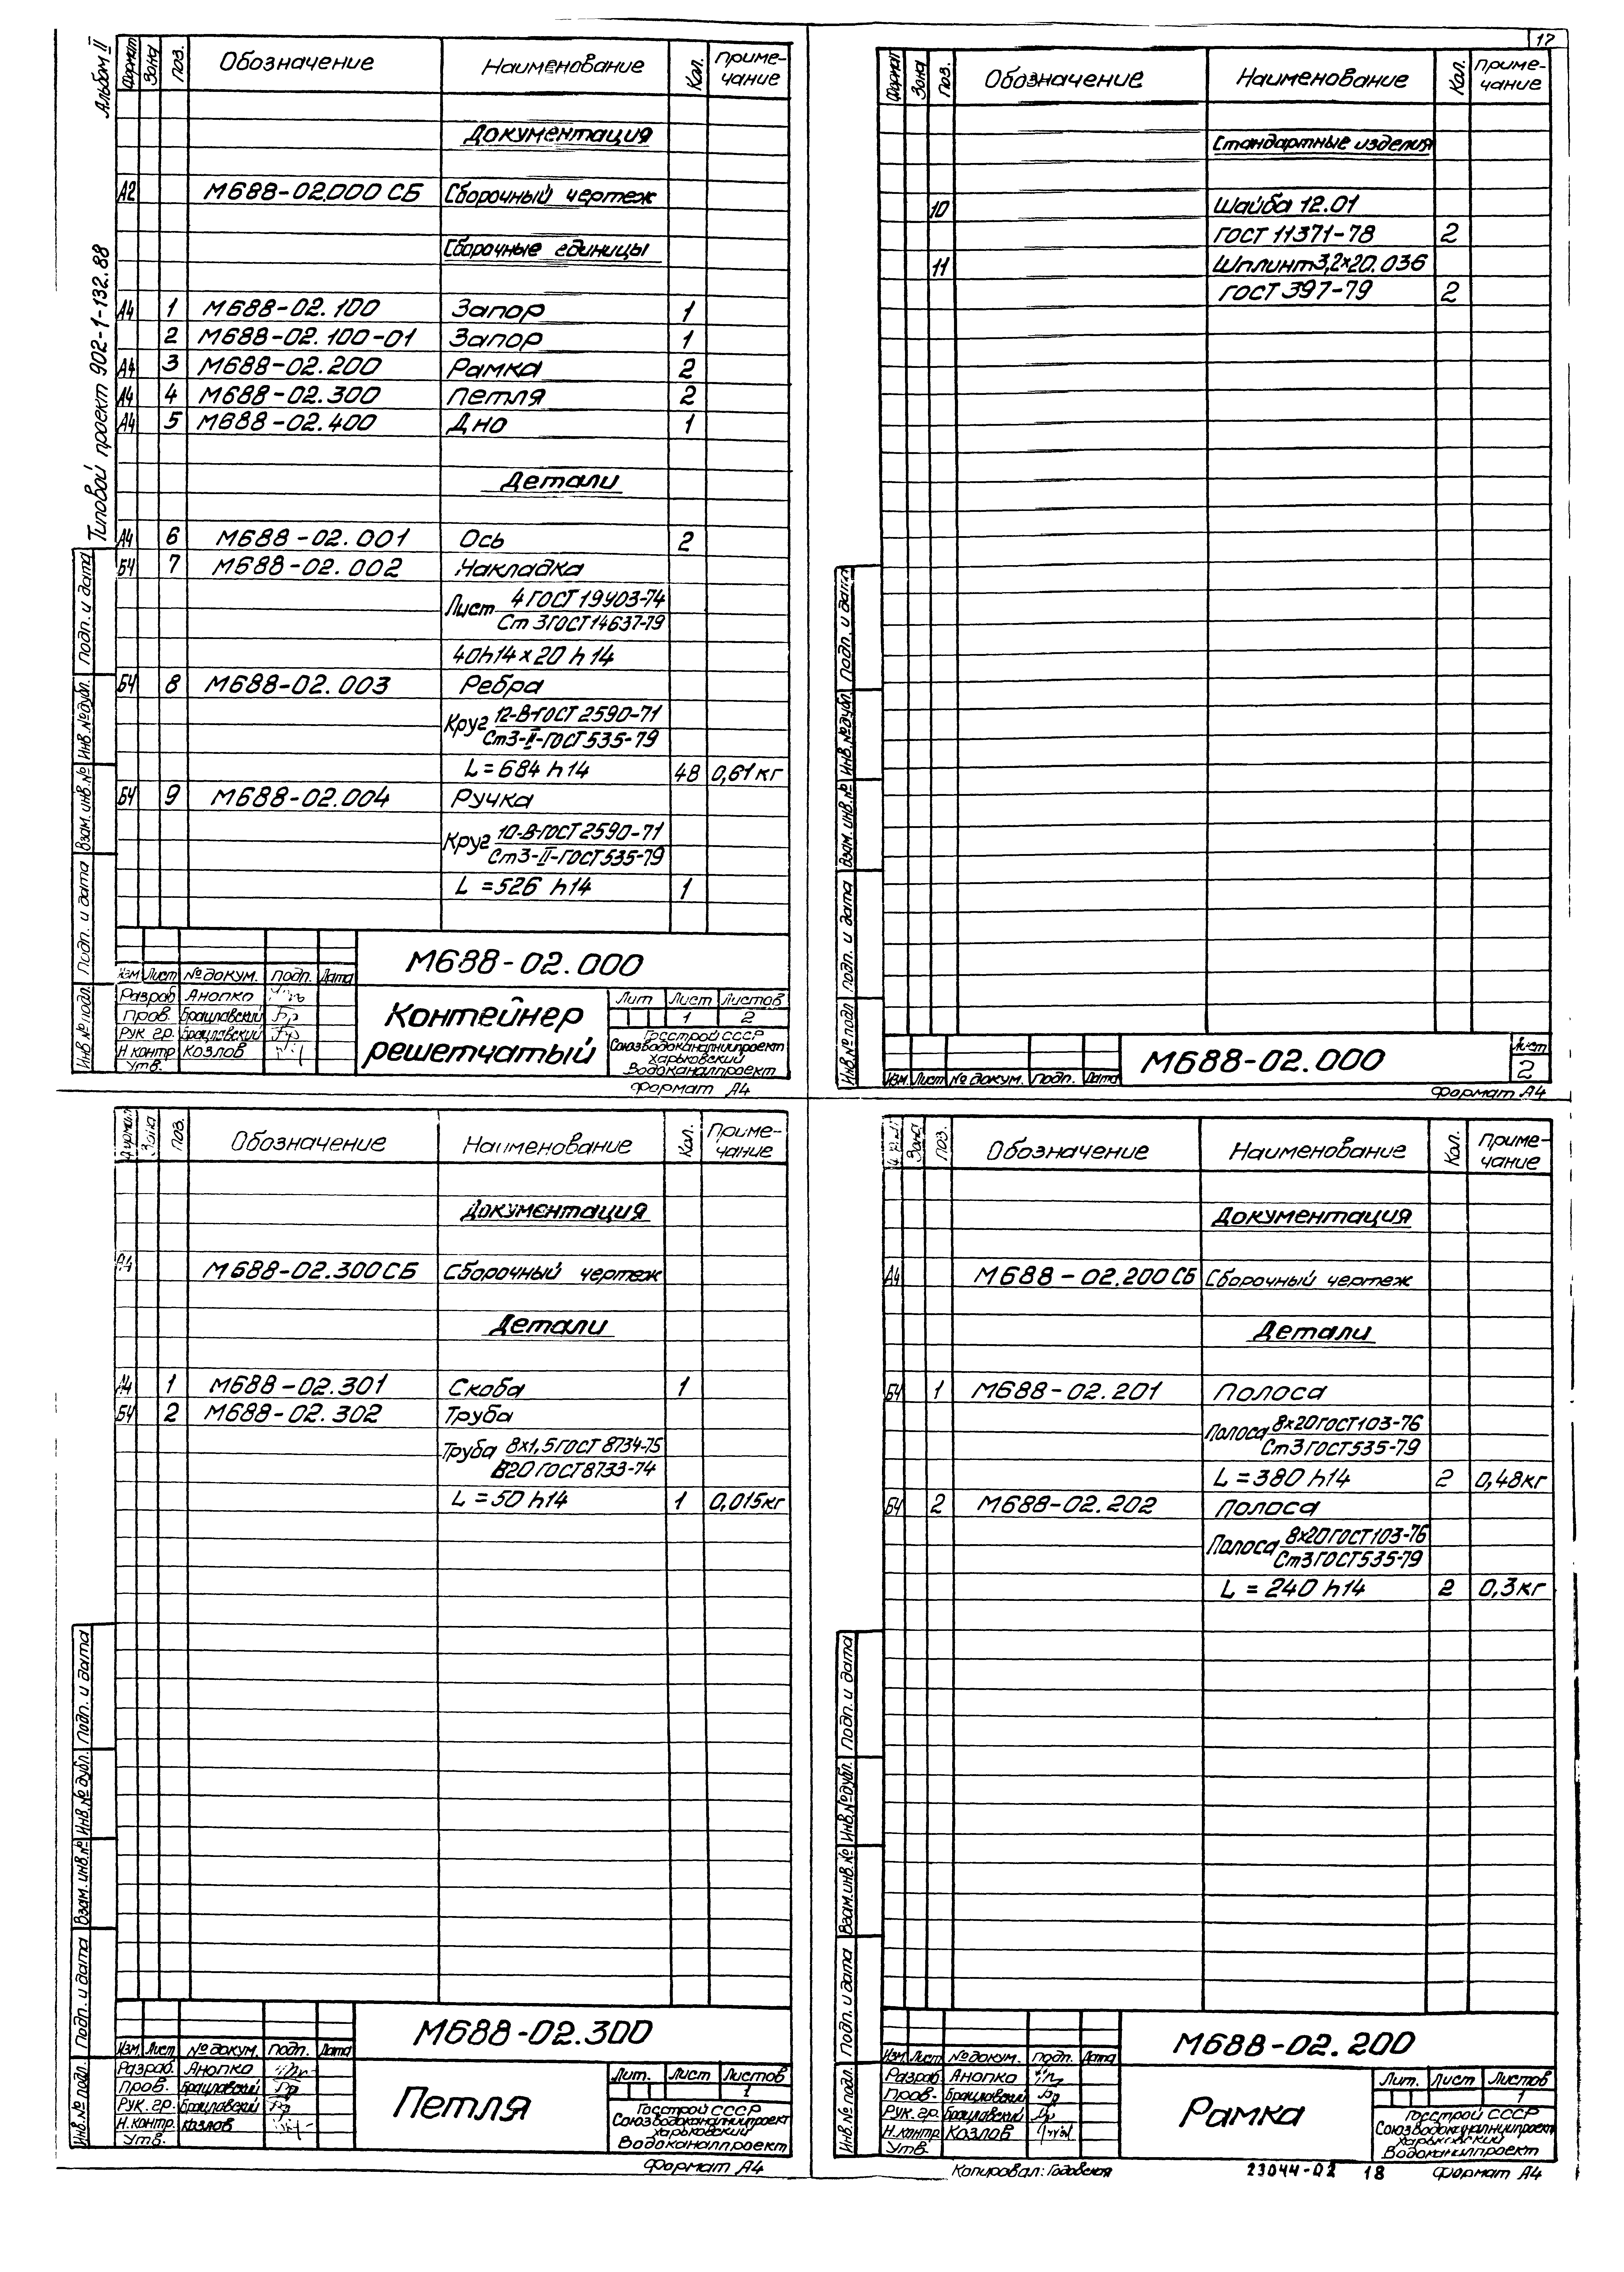 17
Альбом II
Типовой проект 902-1-132.88
Формат Зона Поз. Обозначение Наименование Кол. Приме-чание
Документация
А2 М688-02.000 СБ Сборочный чертеж
Сборочные единицы
А4 1 М688-02.100 Запор 1
2 М688-02.100-01 Запор 1
А4 3 М688-02.200 Рамка 2
А4 4 М688-02.300 Петля 2
А4 5 М688-02.400 Дно 1
Детали
А4 6 М688-02.001 Ось 2
БЧ 7 М688-02.002 Накладка
Лист 4 ГОСТ 19903-74
Ст 3 ГОСТ 14637-79
40h14 × 20 h14
БЧ 8 М688-02.003 Ребра
Круг 12-В-ГОСТ 2590-71
Ст3-II-ГОСТ 535-79
L = 684 h14 48 0,61 кг
БЧ 9 М688-02.004 Ручка
Круг 10-В-ГОСТ 2590-71
Ст3-II-ГОСТ 535-79
L = 526 h14 1
Подп. и дата
Инв.№ дубл.
Взам. инв. №
Подп. и дата
Инв № подл.
М688-02.000
Изм Лист № докум. Подп. Дата
Разраб Анопко
Пров. Брацлавский
Рук. гр. Брацлавский
Н контр Козлов
Утв.
Контейнер
решетчатый
Лит Лист Листов
1 2
Госстрой СССР
Союзводоканалниипроект
Харьковский
Водоканалпроект
Формат А4
Формат Зона Поз. Обозначение Наименование Кол. Приме-чание
Стандартные изделия
10 Шайба 12.01
ГОСТ 11371-78 2
11 Шплинт 3,2×20.036
ГОСТ 397-79 2
Подп. и дата
Инв.№ дубл.
Взам. инв. №
Подп. и дата
Инв.№ подл
Изм. Лист № докум. Подп. Дата
М688-02.000
Лист
2
Формат А4
Формат Зона Поз. Обозначение Наименование Кол. Приме-чание
Документация
А4 М688-02.300 СБ Сборочный чертеж
Детали
А4 1 М688-02.301 Скоба 1
БЧ 2 М688-02.302 Труба
Труба 8х1,5 ГОСТ 8734-75
В20 ГОСТ 8733-74
L = 50 h14 1 0,015кг
Подп. и дата
Инв.№ дубл.
Взам. инв.№
Подп. и дата
Инв.№ подл.
М688-02.300
Изм Лист № докум. Подп. Дата
Разраб. Анопко
Пров. Брацлавский
Рук. гр. Брацлавский
Н.контр. Козлов
Утв.
Петля
Лит. Лист Листов
1
Госстрой СССР
Союзводоканалниипроект
Харьковский
Водоканалпроект
Формат А4
Зона Поз. Обозначение Наименование Кол. Приме-чание
Документация
А4 М688-02.200 СБ Сборочный чертеж
Детали
БЧ 1 М688-02.201 Полоса
Полоса 8х20 ГОСТ 103-76
Ст3 ГОСТ 535-79
L = 380 h14 2 0,48кг
БЧ 2 М688-02.202 Полоса
Полоса 8х20 ГОСТ 103-76
Ст3 ГОСТ 535-79
L = 240 h14 2 0,3кг
Подп. и дата
Инв.№ дубл.
Взам. инв. №
Подп. и дата
Инв.№ подл.
М688-02.200
Изм Лист № докум. Подп. Дата
Разраб. Анопко
Пров. Брацлавский
Рук. гр. Брацлавский
Н.контр Козлов
Утв.
Рамка
Лит. Лист Листов
1
Госстрой СССР
Союзводоканалниипроект
Харьковский
Водоканалпроект
Копировал: Годовская
23044-02 18
Формат А4